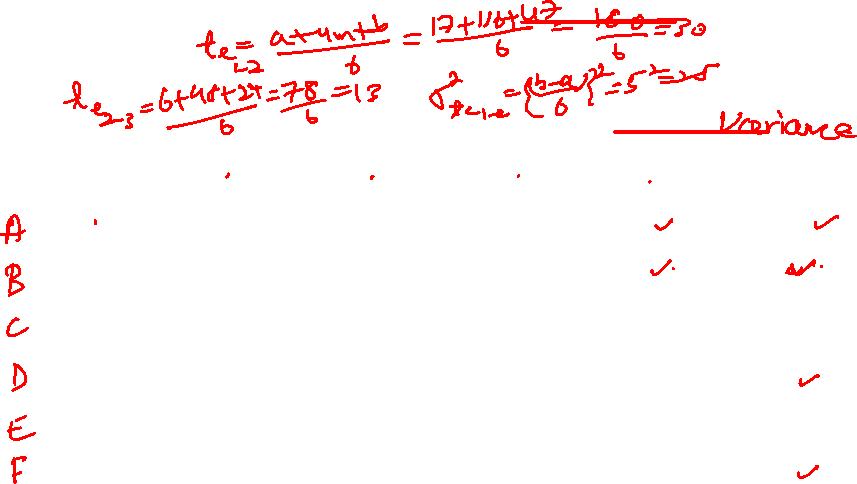 te₁₋₂ = a+4m+b/6 = 17+116+47/6 = 180/6 = 30
te₂₋₃ = 6+48+24/6 = 78/6 = 13 σ²te₁₋₂ = {b-a/6}² = 5² = 25
Variance
A ✓ ✓
B ✓ ✓
C
D ✓
E
F ✓